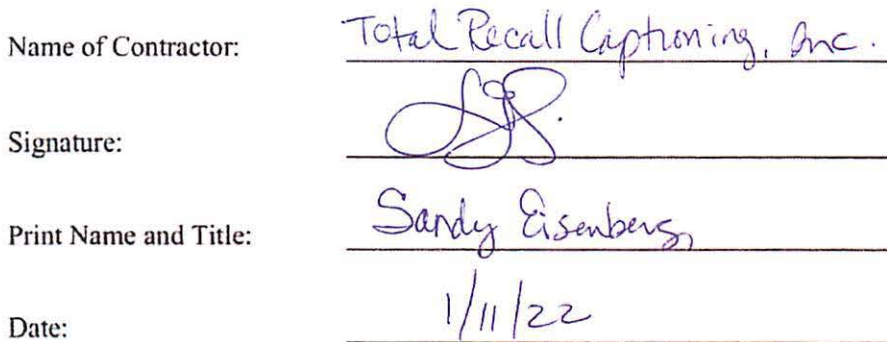 Name of Contractor: Total Recall Captioning, Inc.
Signature:
Print Name and Title: Sandy Eisenberg,
Date: 1/11/22